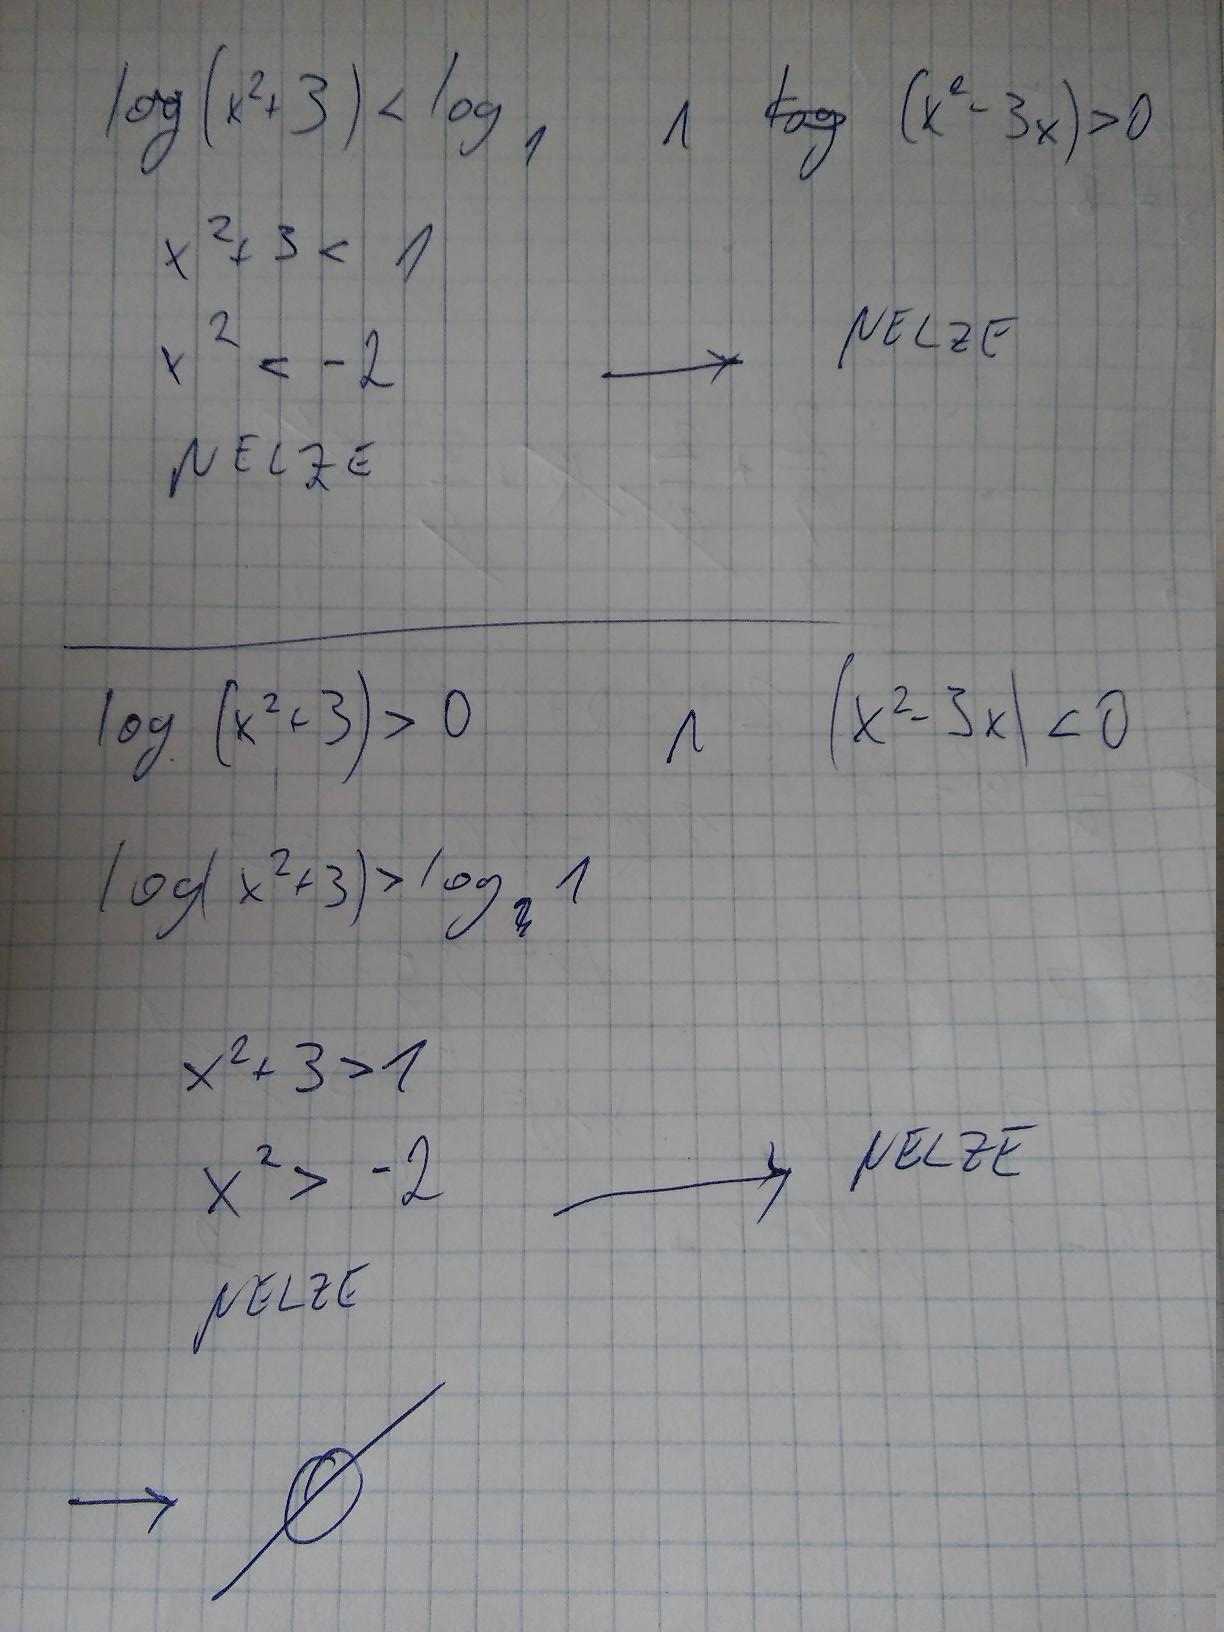 log(x²+3) < log 1 ∧ log (x²-3x)>0
x²+3 < 1
x² < -2 → NELZE
NELZE
log (x²+3) > 0 ∧ (x²-3x) < 0
log(x²+3) > log 1
x²+3 > 1
x² > -2 → NELZE
NELZE
→ ∅